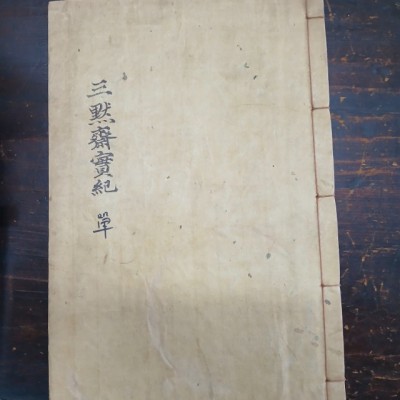 三黙齋實紀 單